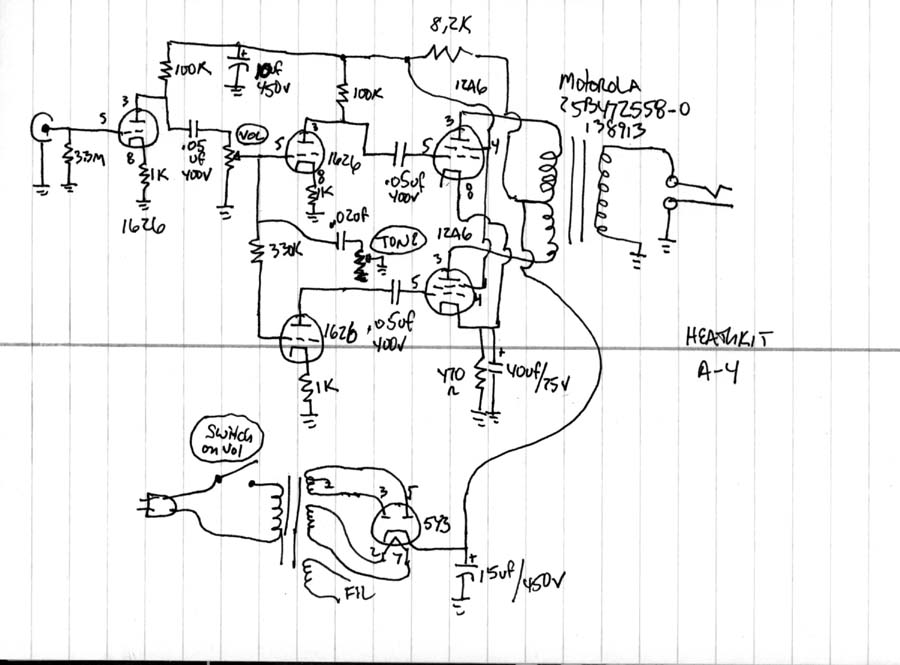 8,2K
100K
10uf
450V
100K
12A6
MOTOROLA
25B472558-0
138913
3
5
8
3.3M
1K
1626
.05
uf
400V
VOL
3
5
8
1K
1626
.05uf
400V
5
3
4
8
.02uf
TONE
330K
12A6
3
5
4
1626
.05uf
400V
1K
470
Ω
+
40uf/25V
HEATHKIT
A-4
SWITCH
on Vol
2
3
5
5Y3
2
7
+
15uf/450V
FIL